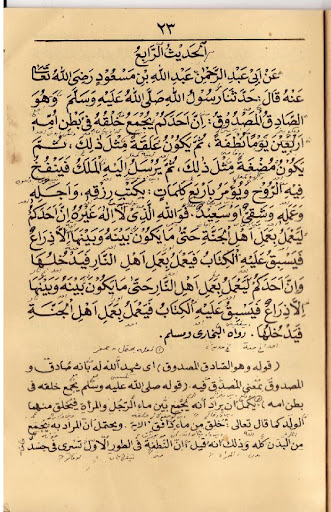 ٢٣
اَلْحَدِيْثُ الرَّابِعُ
عَنْ اَبِىْ عَبْدِ الرَّحْمٰنِ عَبْدِ اللهِ بْنِ مَسْعُوْدٍ رَضِىَ اللهُ تَعَالٰى
عَنْهُ قَالَ: حَدَّثَنَا رَسُوْلُ اللهِ صَلَّى اللهُ عَلَيْهِ وَسَلَّمَ وَهُوَ
الصَّادِقُ الْمَصْدُوْقُ: اِنَّ اَحَدَكُمْ يُجْمَعُ خَلْقُهُ فِىْ بَطْنِ اُمِّهِ
اَرْبَعِيْنَ يَوْمًا نُطْفَةً، ثُمَّ يَكُوْنُ عَلَقَةً مِثْلَ ذٰلِكَ، ثُمَّ
يَكُوْنُ مُضْغَةً مِثْلَ ذٰلِكَ، ثُمَّ يُرْسَلُ اِلَيْهِ الْمَلَكُ فَيَنْفُخُ
فِيْهِ الرُّوْحَ وَيُؤْمَرُ بِاَرْبَعِ كَلِمَاتٍ: بِكَتْبِ رِزْقِهِ، وَاَجَلِهِ
وَعَمَلِهِ وَشَقِىٌّ اَوْ سَعِيْدٌ. فَوَاللهِ الَّذِىْ لَا اِلٰهَ غَيْرُهُ اِنَّ اَحَدَكُمْ
لَيَعْمَلُ بِعَمَلِ اَهْلِ الْجَنَّةِ حَتّٰى مَا يَكُوْنُ بَيْنَهُ وَبَيْنَهَا اِلَّا ذِرَاعٌ
فَيَسْبِقُ عَلَيْهِ الْكِتَابُ فَيَعْمَلُ بِعَمَلِ اَهْلِ النَّارِ فَيَدْخُلُهَا
وَاِنَّ اَحَدَكُمْ لَيَعْمَلُ بِعَمَلِ اَهْلِ النَّارِ حَتّٰى مَا يَكُوْنُ بَيْنَهُ وَبَيْنَهَا
اِلَّا ذِرَاعٌ فَيَسْبِقُ عَلَيْهِ الْكِتَابُ فَيَعْمَلُ بِعَمَلِ اَهْلِ الْجَنَّةِ
فَيَدْخُلُهَا. رَوَاهُ الْبُخَارِى وَمُسْلِم.
(قوله وهو الصادق المصدوق) اى شهد الله له بانه صادق و
المصدوق بمعنى المصدق فيه (قوله صلى الله عليه وسلم يجمع خلقه فى
بطن امه) يحتمل ان يراد انه يجمع بين ماء الرجل والمرأة فيخلق منهما
الولد كما قال تعالى (خلق من ماء دافق) الاية. ويحتمل ان المراد به يجمع
من البدن كله وذلك انه قيل ان النطفة فى الطور الاول تسرى فى جسد